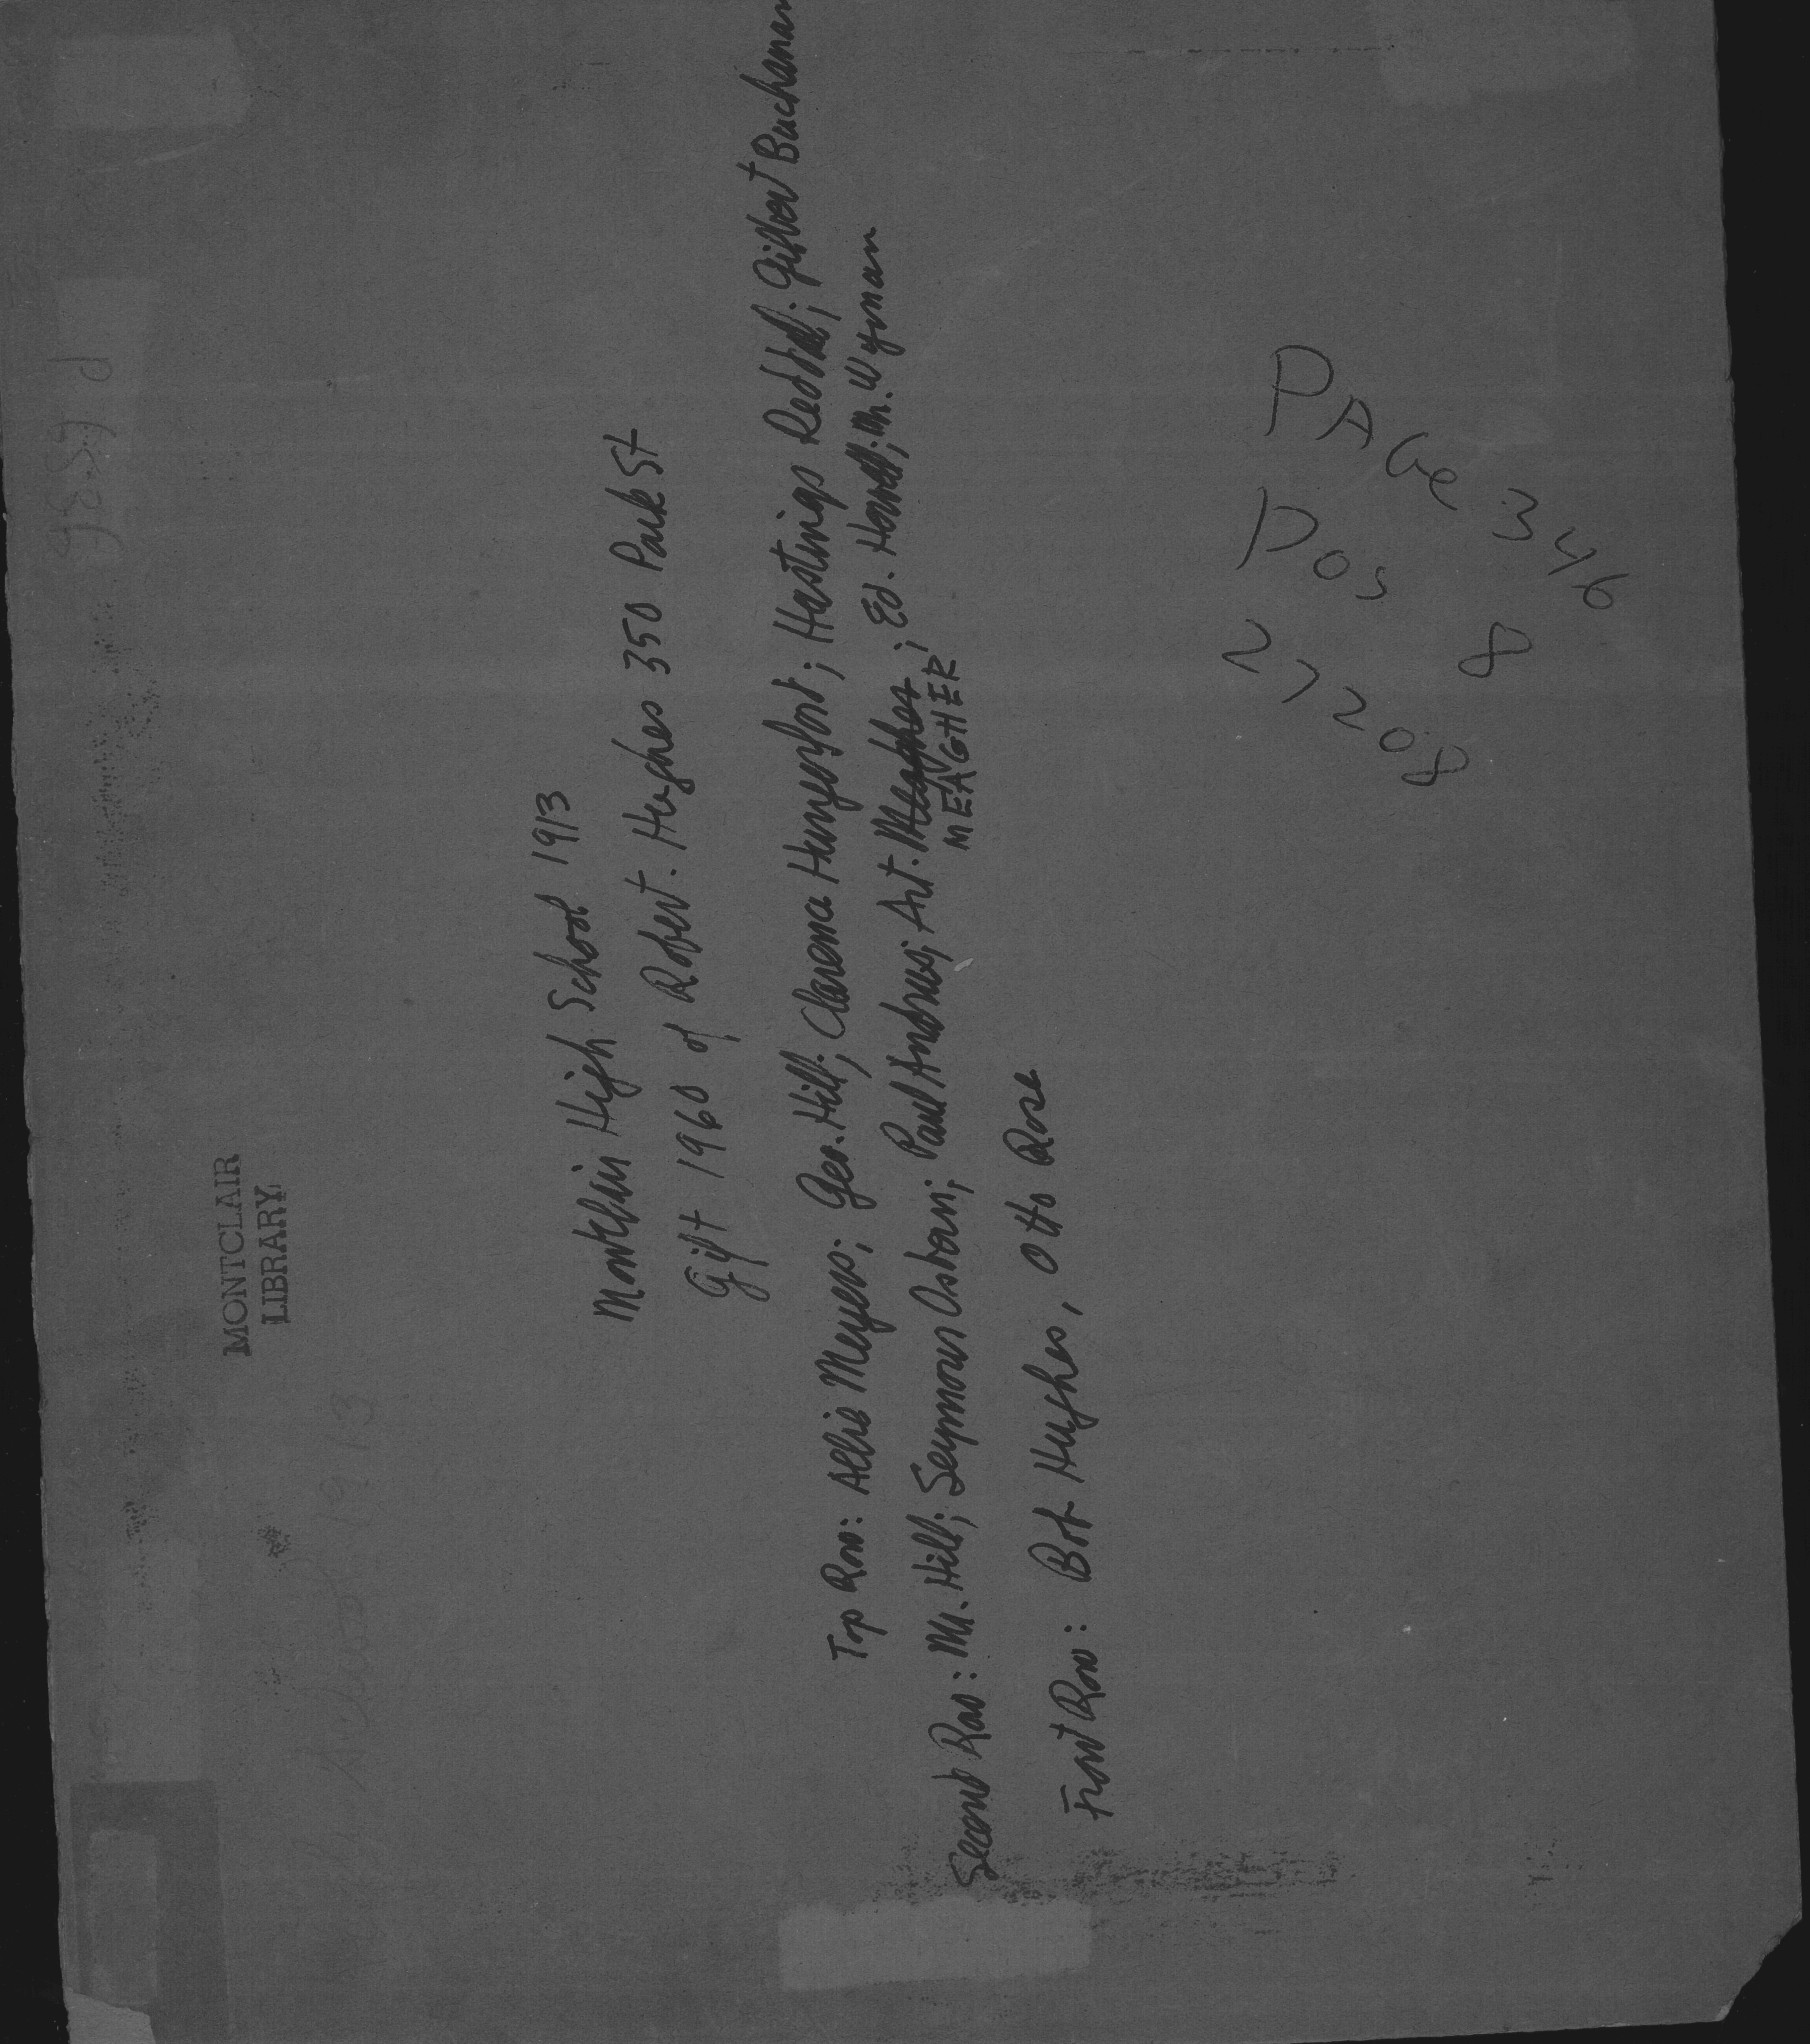 MONTCLAIR
LIBRARY
1913
Montclair High School 1913
Gift 1960 of Robert. Hughes 350 Park St
Top Row: Allie Meyers; Geo. Hill; Clarence Hungerford; Hastings ; Gilbert Buchanan
Second Row: Mr. Hill; Seymour Osborn; Paul Andrews; Art. Meagher; Ed. Howell; Mr. Wyman
MEAGHER
Front Row: Bob Hughes, Otto Rose
PAGe 346
Pos 8
27208